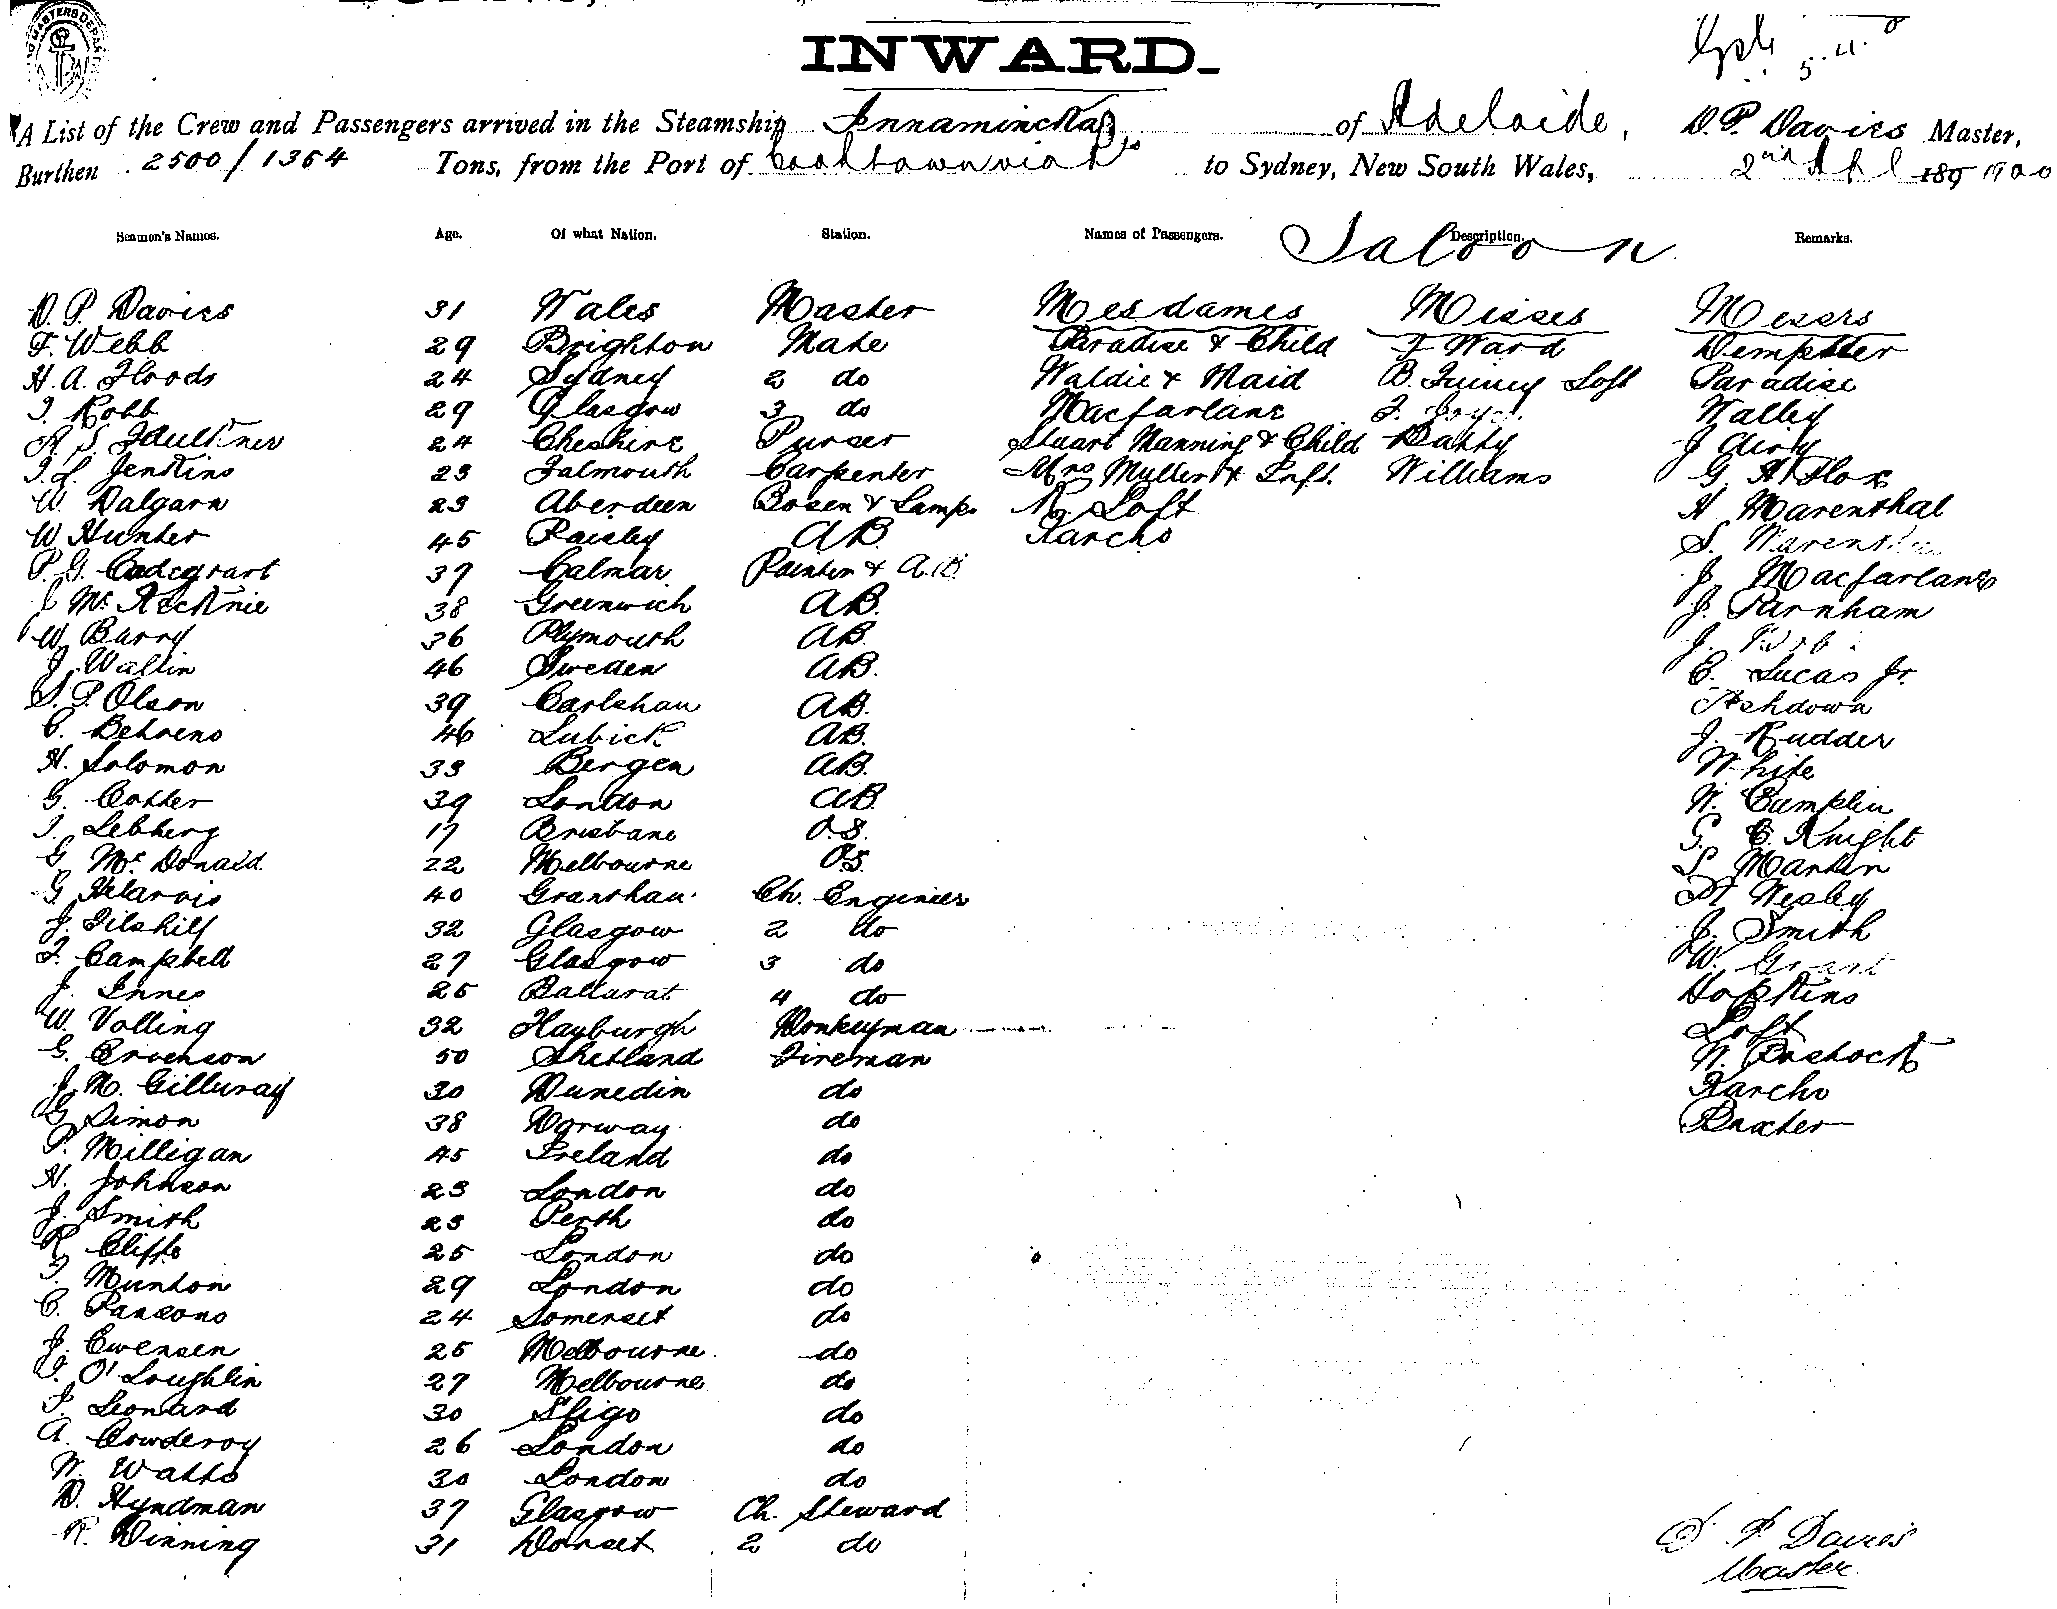 INWARD.
A List of the Crew and Passengers arrived in the Steamship Innamincka of Adelaide, D. P. Davies Master,
Burthen 2500/1364 Tons, from the Port of Cooktown via to Sydney, New South Wales, 2nd Apl 189 1900
Seamen's Names. Age. Of what Nation. Station. Names of Passengers. Description. Remarks.
Saloon
D. P. Davies 31 Wales Master Mesdames Misses Messrs
F. Webb 29 Brighton Mate Paradise & Child Ward Dempster
H. A. Floods 24 Sydney 2 do Waldie & Maid B. Loft Paradise
J. Robb 29 Glasgow 3 do Macfarlane Walley
A. S. Faulkner 24 Cheshire Purser Stuart Manning & Child Batty J Airy
J. L. Jenkins 23 Falmouth Carpenter Mrs Muller & Inft. Williams G. A. Flox
W. Dalgarn 23 Aberdeen Bosen & Lamps Loft H Marenthal
W Hunter 45 Paisley AB. Karcho S.
P. G. Cadegrart 37 Calmar Painter & A.B. J. Macfarlane
Mc Kecknie 38 Greenwich AB. J. Farnham
W. Barry 36 Plymouth AB. J.
J. Wallin 46 Sweden AB. E. Lucas Jr.
S. P. Olson 39 Carlshau AB. Ashdown
C. Behrens 46 Lubick AB. J. Rudder
H. Solomon 33 Bergen AB. White
G. Cotter 39 London AB. W. Camplin
J. Lebberg 17 Brisbane O.S. G. C. Knight
G Mc Donald 22 Melbourne O.S. S Mantin
G Helarvis 40 Granthau Ch. Engineer Wesley
J. Gilshilf 32 Glasgow 2 do J. Smith
F. Campbell 27 Glasgow 3 do W. Grant
J. Innes 25 Ballarat 4 do Hopkins
W. Volling 32 Hayburgh Donkeyman Loft
G. Ervenson 50 Shetland Fireman W. Pashock
J. M. Gilluray 30 Dunedin do Karcho
G Simon 38 Norway do Baxter
P. Milligan 45 Ireland do
H. Johnson 23 London do
J. Smith 23 Perth do
R. Cliffe 25 London do
Munton 29 London do
C. Parsons 24 Somerset do
J. Ewensen 25 Melbourne do
O'Loughlin 27 Melbourne do
Leonard 30 Sligo do
A. Cowderoy 26 London do
W. Watts 30 London do
D. Hyndman 37 Glasgow Ch. Steward
R. Dinning 31 Dorset 2 do
D. P. Davies
Master